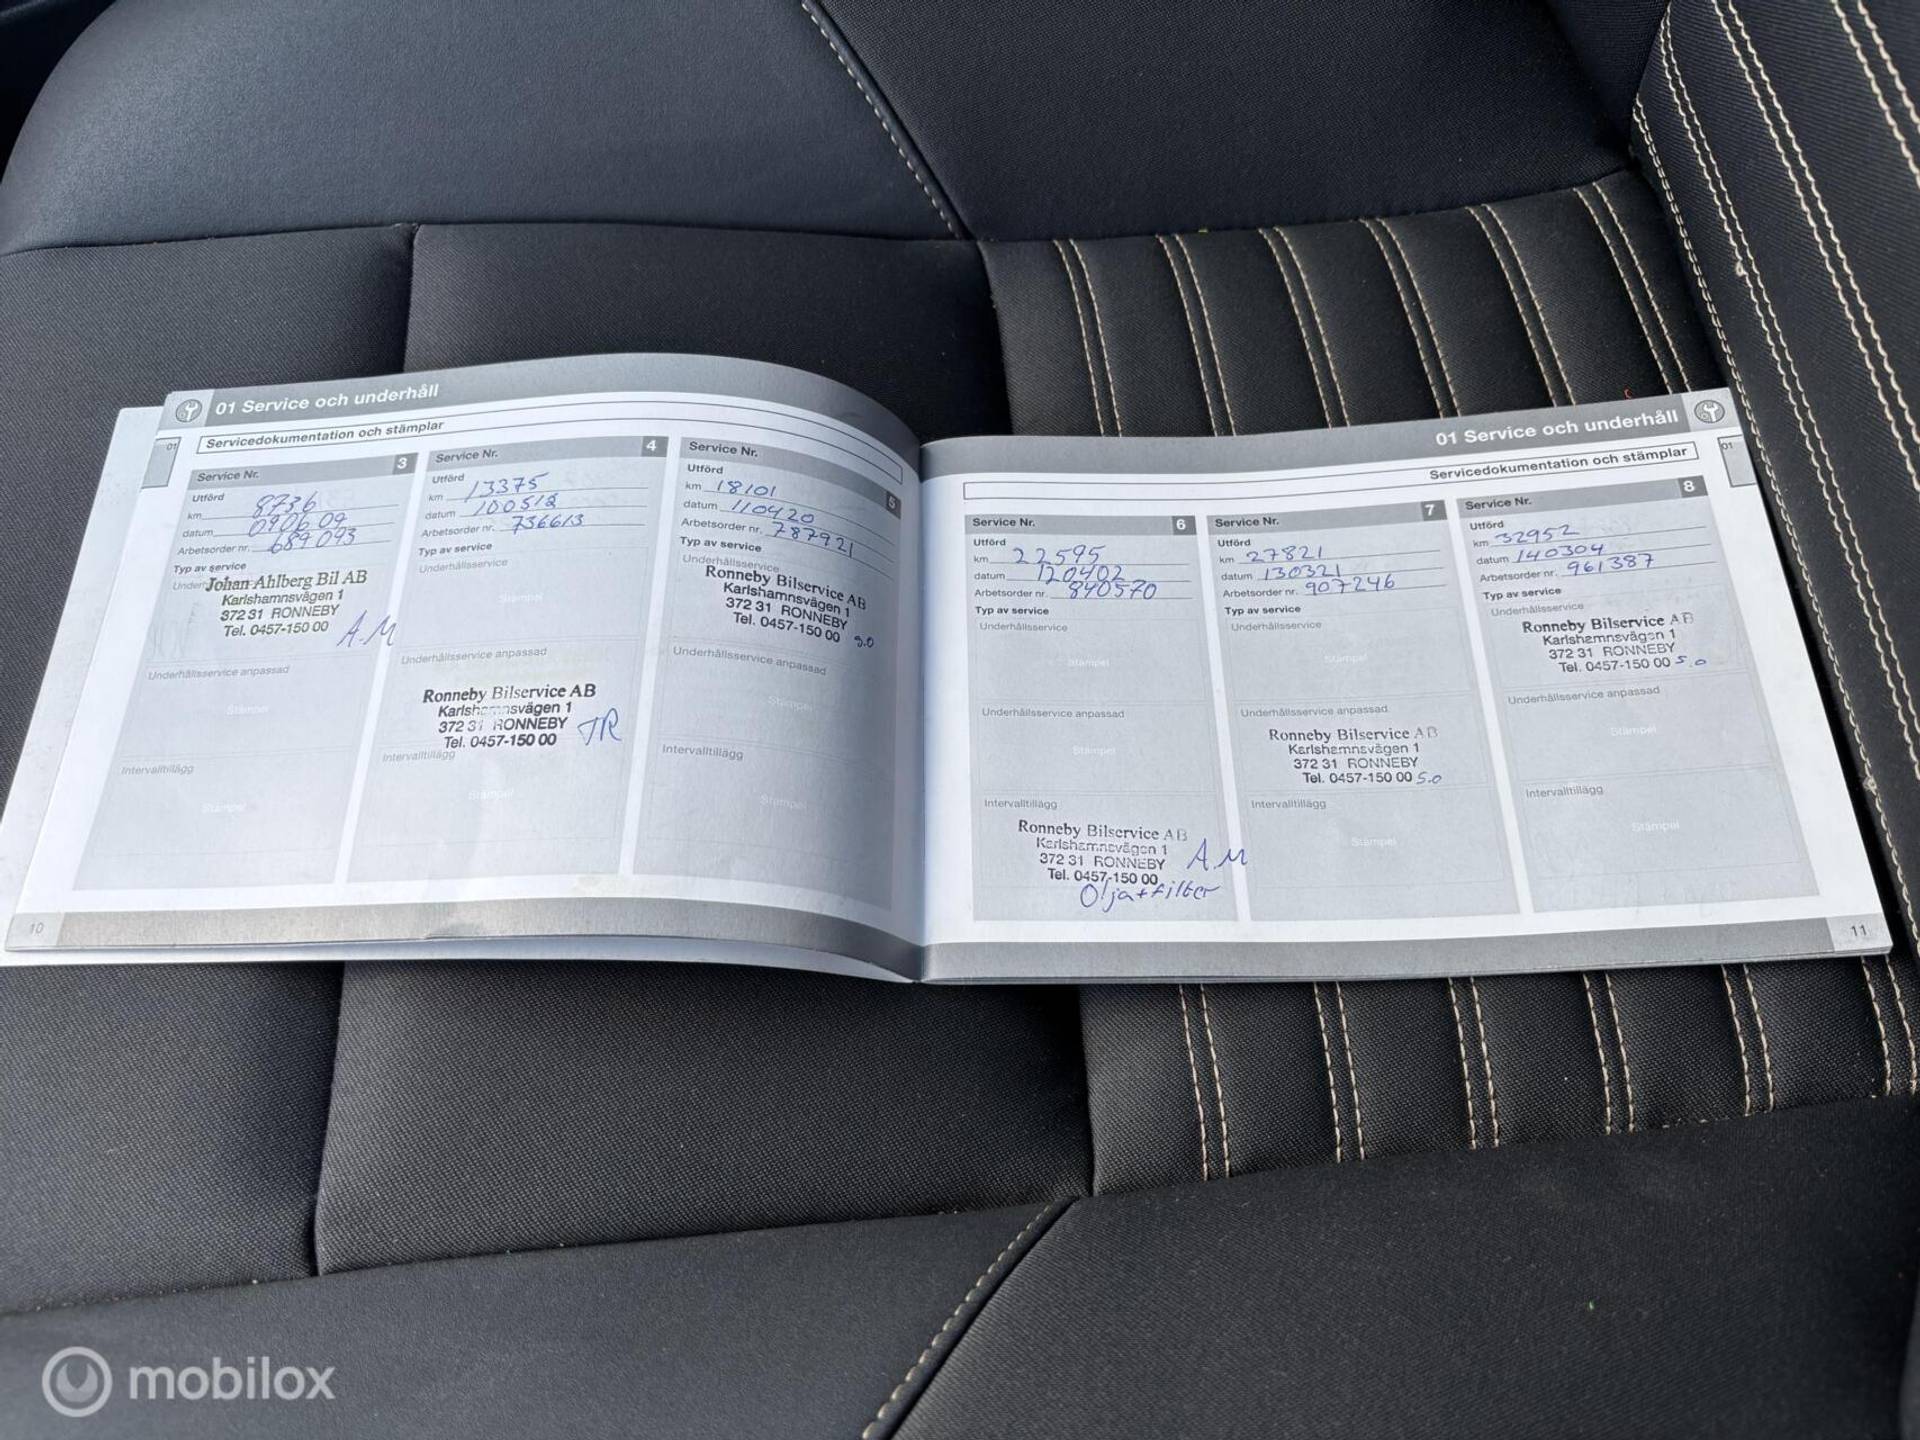 01 Service och underhåll
Servicedokumentation och stämplar
01
Service Nr. 3
Utförd
km 8736
datum 090609
Arbetsorder nr. 689093
Typ av service
Johan Ahlberg Bil AB
Karlshamnsvägen 1
372 31 RONNEBY
Tel. 0457-150 00
A.M
Underhållsservice anpassad
Stämpel
Intervalltillägg
Stämpel
Service Nr. 4
Utförd
km 13375
datum 100512
Arbetsorder nr. 736613
Typ av service
Underhållsservice
Stämpel
Underhållsservice anpassad
Ronneby Bilservice AB
Karlshamnsvägen 1
372 31 RONNEBY
Tel. 0457-150 00
JR
Intervalltillägg
Stämpel
Service Nr. 5
Utförd
km 18101
datum 110420
Arbetsorder nr. 787921
Typ av service
Underhållsservice
Ronneby Bilservice AB
Karlshamnsvägen 1
372 31 RONNEBY
Tel. 0457-150 00 S.O
Underhållsservice anpassad
Stämpel
Intervalltillägg
Stämpel
10
01 Service och underhåll
Servicedokumentation och stämplar
01
Service Nr. 6
Utförd
km 22595
datum 120402
Arbetsorder nr. 840570
Typ av service
Underhållsservice
Stämpel
Underhållsservice anpassad
Stämpel
Intervalltillägg
Ronneby Bilservice AB
Karlshamnsvägen 1
372 31 RONNEBY
Tel. 0457-150 00
A.M
Olja+filter
Service Nr. 7
Utförd
km 27821
datum 130321
Arbetsorder nr. 907246
Typ av service
Underhållsservice
Stämpel
Underhållsservice anpassad
Ronneby Bilservice AB
Karlshamnsvägen 1
372 31 RONNEBY
Tel. 0457-150 00 S.O
Intervalltillägg
Stämpel
Service Nr. 8
Utförd
km 32952
datum 140304
Arbetsorder nr. 961387
Typ av service
Underhållsservice
Ronneby Bilservice AB
Karlshamnsvägen 1
372 31 RONNEBY
Tel. 0457-150 00 S.O
Underhållsservice anpassad
Stämpel
Intervalltillägg
Stämpel
11
mobilox